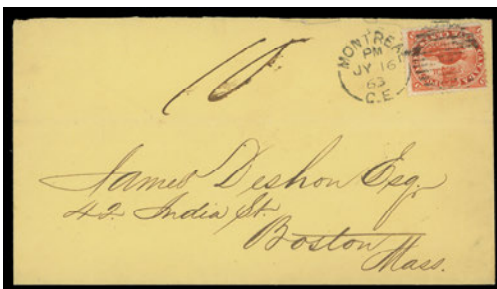 10
MONTREAL
PM
JY 16
63
C.E.
James Deshon Esq.
42 India St.
Boston
Mass.